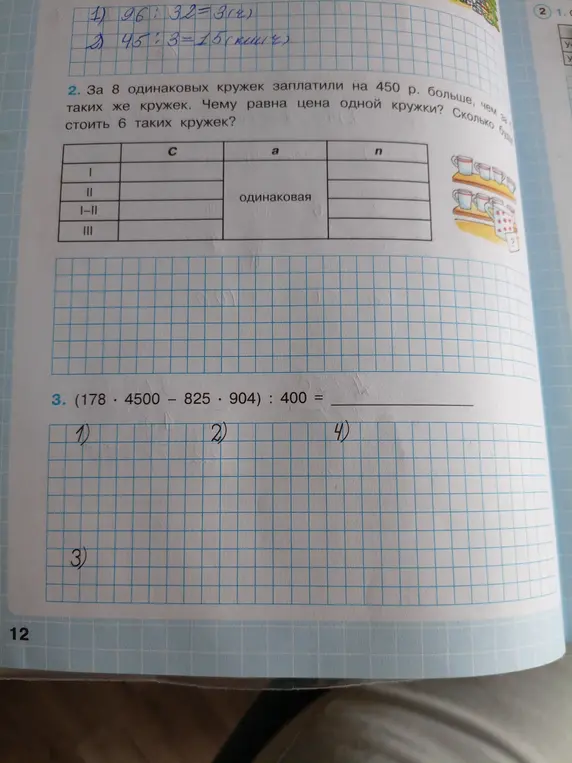 1) 96 : 32 = 3 (ч)
2) 45 : 3 = 15 (км/ч)
2. За 8 одинаковых кружек заплатили на 450 р. больше, чем за
таких же кружек. Чему равна цена одной кружки? Сколько
стоить 6 таких кружек?
C a n
I
II
одинаковая
I–II
III
3. (178 · 4500 – 825 · 904) : 400 =
1) 2) 4)
3)
12
2 1.